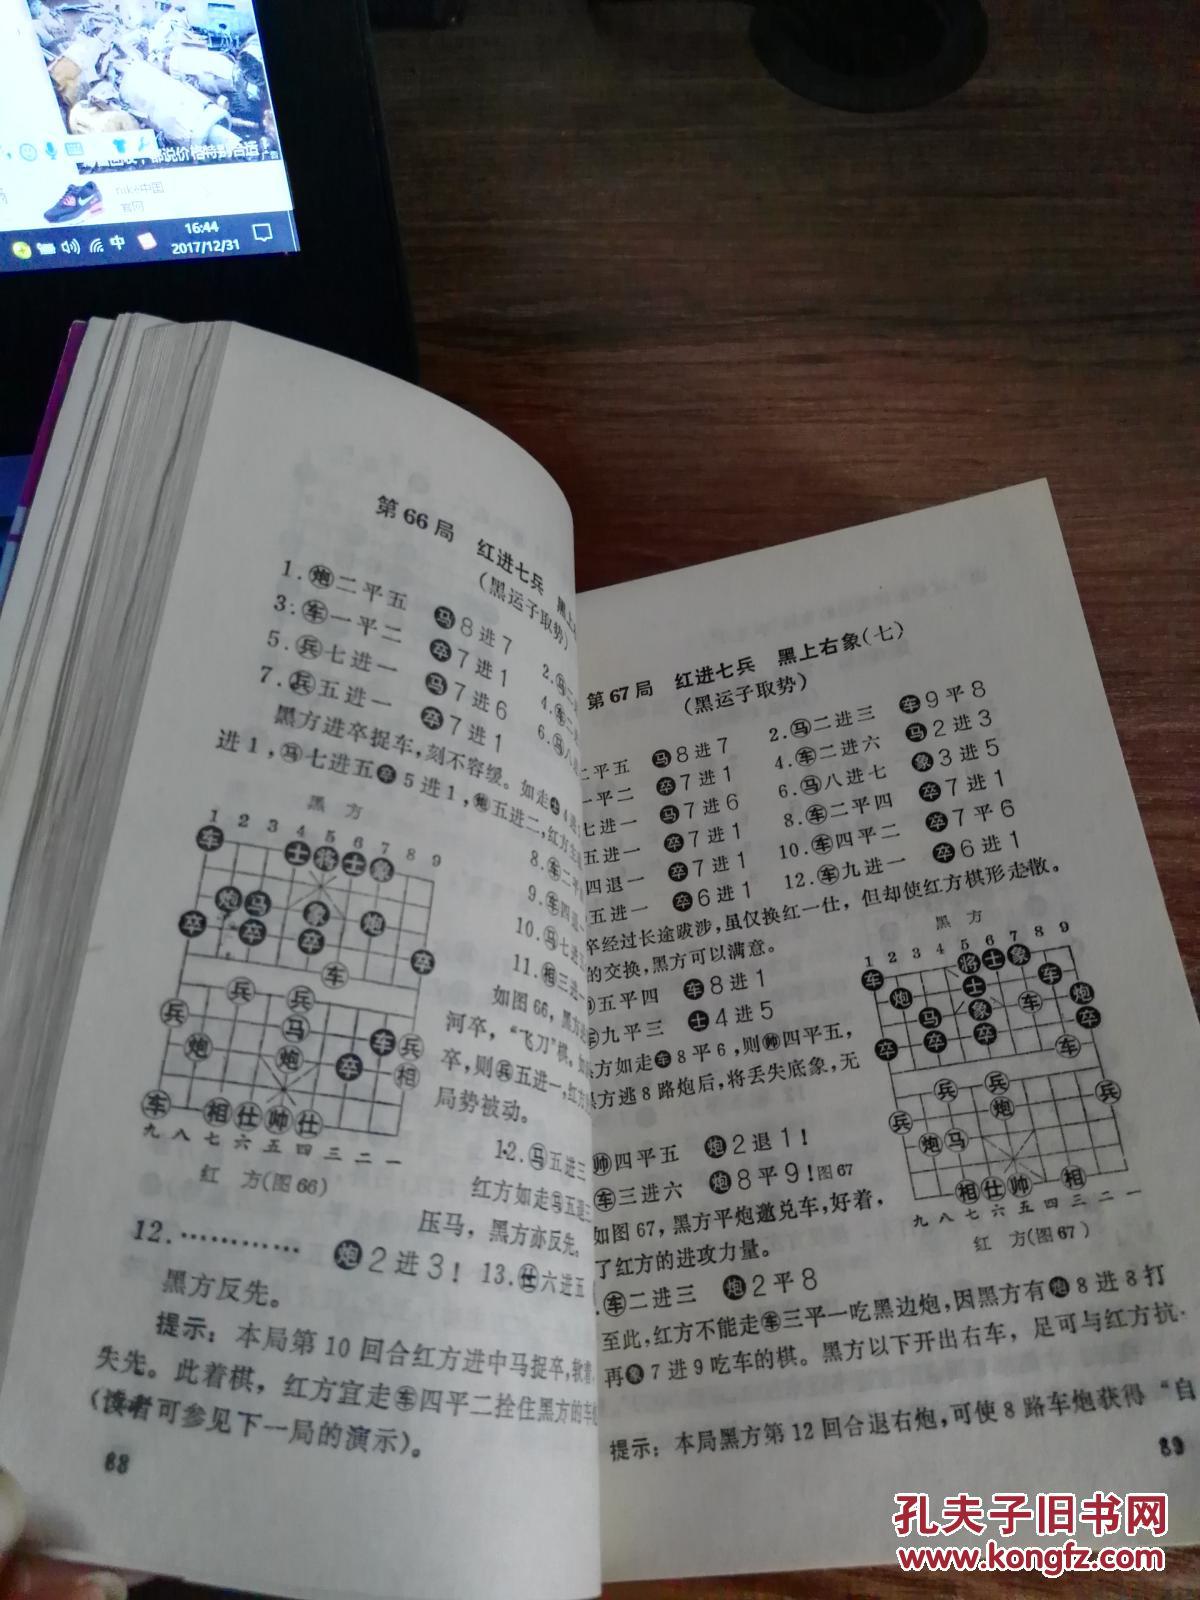 都说价格特别合适!
广告
nike中国
官网
16:44
2017/12/31
中
第66局 红进七兵 黑上
(黑运子取势)
1.炮二平五 马8进7
3.车一平二 卒7进1
5.兵七进一 马7进6
7.兵五进一 卒7进1
2.马二
4.车二
6.马八
黑方进卒捉车,刻不容缓。如走士4进
进1,马七进五卒5进1,炮五进二,红方
黑方
1 2 3 4 5 6 7 8 9
车 士 将 士 象
炮 马 象 炮
卒 卒 卒 卒
车
兵 兵
兵 马 车 兵
炮 炮 卒 相
车 相 仕 帅 仕
九 八 七 六 五 四 三 二 一
红 方(图66)
8.车二平
9.车四退一
10.马七进五
11.相三进一
如图66,黑方
河卒,“飞刀”棋,如
卒,则兵五进一,红方
局势被动。
12.马五进三
红方如走马五退三
压马,黑方亦反先。
12.………… 炮2进3! 13.仕六进五
黑方反先。
提示:本局第10回合红方进中马捉卒,软着,
失先。此着棋,红方宜走车四平二拴住黑方的车
(读者可参见下一局的演示)。
88
第67局 红进七兵 黑上右象(七)
(黑运子取势)
二平五 马8进7 2.马二进三 车9平8
一平二 卒7进1 4.车二进六 马2进3
七进一 马7进6 6.马八进七 象3进5
五进一 卒7进1 8.车二平四 卒7进1
四退一 卒7进1 10.车四平二 卒7平6
五进一 卒6进1 12.车九进一 卒6进1
卒经过长途跋涉,虽仅换红一仕,但却使红方棋形走散。
的交换,黑方可以满意。
五平四 车8进1
车九平三 士4进5
黑方如走车8平6,则帅四平五,
黑方逃8路炮后,将丢失底象,无
帅四平五 炮2退1!
车三进六 炮8平9!图67
如图67,黑方平炮邀兑车,好着,
了红方的进攻力量。
车二进三 炮2平8
黑方
1 2 3 4 5 6 7 8 9
车 将 士 象
炮 士 车
马 象 车 炮
卒 卒 卒 卒
车
兵 兵
兵 炮 兵
炮 马
相 仕 帅 相
九 八 七 六 五 四 三 二 一
红 方(图67)
至此,红方不能走车三平一吃黑边炮,因黑方有炮8进8打
再象7进9吃车的棋。黑方以下开出右车,足可与红方抗
提示:本局黑方第12回合退右炮,可使8路车炮获得“自
89
孔夫子旧书网
www.kongfz.com